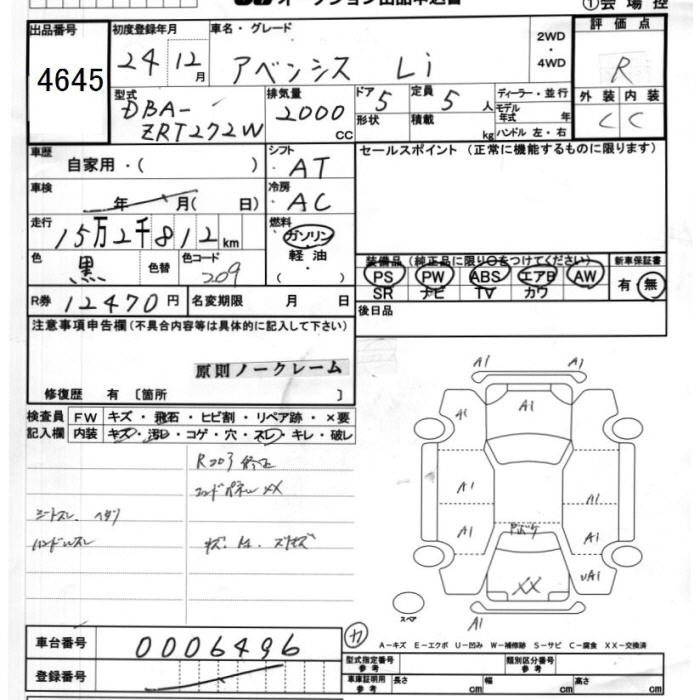 ①会場控
出品番号
4645
初度登録年月
24 12 月
車名・グレード
アベンシス Li
2WD
・
4WD
評価点
R
外装 内装
C C
型式
DBA-
ZRT272W
排気量
2000 cc
ドア 5
形状
定員 5 人
積載 kg
ディーラー・並行
モデル年式 年
ハンドル 左・右
車歴
自家用・( )
シフト
AT
車検
年 月( 日)
冷房
AC
走行
15万2千812 km
燃料
ガソリン
軽油
( )
色
黒
色替
色コード
209
R券 12470 円
名変期限 月 日
セールスポイント (正常に機能するものに限ります)
装備品 (純正品に限り○をつけてください)
PS PW ABS エアB AW
SR ナビ TV カワ
新車保証書
有・無
後日品
注意事項申告欄(不具合内容等は具体的に記入して下さい)
原則ノークレーム
修復歴 有 〔箇所 〕
検査員
記入欄
FW キズ・飛石・ヒビ割・リペア跡・×要
内装 キズ・汚レ・コゲ・穴・スレ・キレ・破レ
シートスレ、ヘタリ
ハンドルスレ
A1 A1
A1 A1
A1 A1
A1 A1
UA1
XX
A1
スペア
カ
A－キズ E－エクボ U－凹み W－補修跡 S－サビ C－腐食 XX－交換済
車台番号
0006496
登録番号
型式指定番号
参考
類別区分番号
参考
車庫証明用
参考
長さ cm 幅 cm 高さ cm